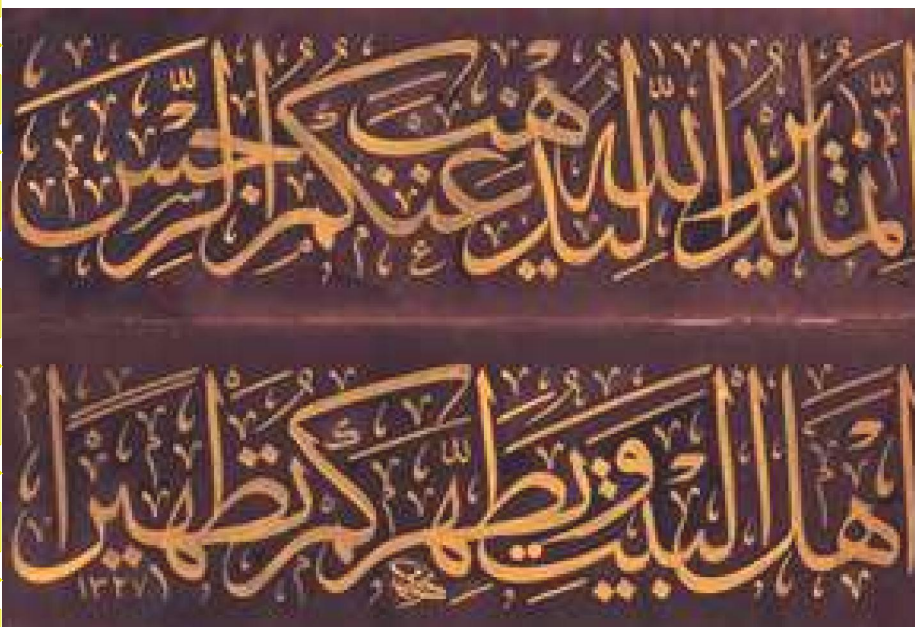 إنما يريد الله ليذهب عنكم الرجس
اهل البيت ويطهركم تطهيرا
١٣٢٧